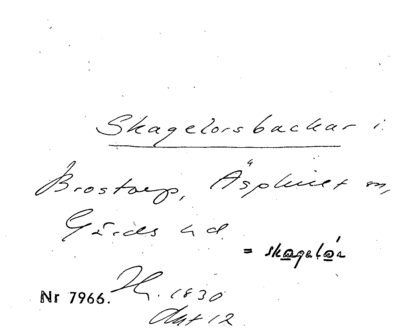 Skagelorsbackar i
Brostorp, Äspluret m,
Gärds hd.
= skagelår
Nr 7966. H. 1830
Avt 12